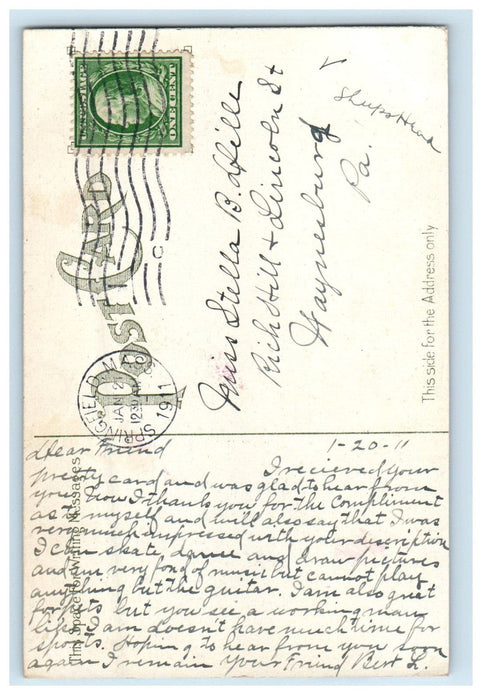 U.S. POSTAGE
ONE CENT
POST CARD
SPRINGFIELD MASS
JAN 21
1230 AM
1911
SheepsHead
Miss Stella B. Hille
Rich Hill + Lincoln St
Waynesburg
Pa.
This side for the Address only
This Space for Writing Messages
Dear Friend 1-20-11
I recieved your
pretty card and was glad to hear from
you. Now I thank you for the Compliment
as to myself and will also say that I was
very much impressed with your description
I can skate, dance and draw pictures
and am very fond of music but cannot play
anything but the guitar. I am also great
for pets but you see a working man
like I am doesn't have much time for
sports. Hoping to hear from you soon
again I remain Your Friend Bert L.